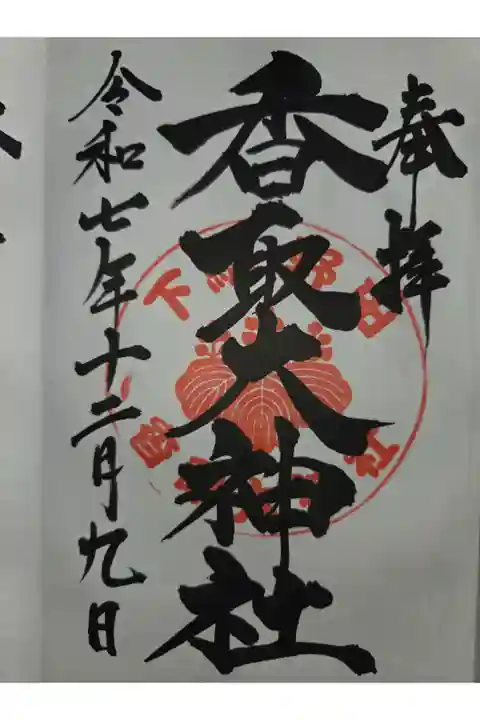 奉拝
香取大神社
令和七年十二月九日